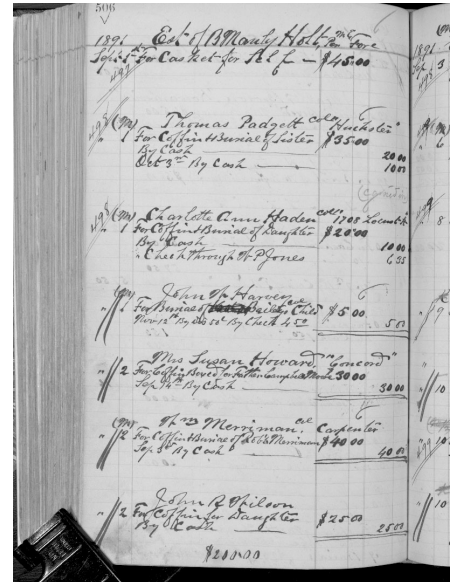 508
1891 Est of B Manly Holt,
Sept 1st For Casket for Self — $45.00
498 (M) Thomas Padgett cold "Huckster"
" 1 For Coffin & Burial of Sister $35.00
By Cash 20 00
Oct 3rd By Cash 10 00
498 (M) Charlott Ann Haden cold 1708 Locust St
" 1 For Coffin & Burial of Daughter $20.00
By Cash 10 00
" Check through W P Jones 6 35
(M) John W Harvey
" 1 For Burial of Child $5.00
Nov 12th By 50¢ By Check 4 50 5 00
Mrs Susan Howard, "Concord"
" 2 For Coffin 30 00
Sep 24th By Cash 30 00
(M) Wm Merriman, col Carpenter
" 2 For Coffin & Burial of Merriman $40 00
Sep 3rd By Cash 40 00
John R Wilson
" 2 For Coffin for Daughter $25 00
By Cash 25 00
$200.00
1891
Sep 3
" 6
" 8
" 9
" 10
499 " 10
" 10